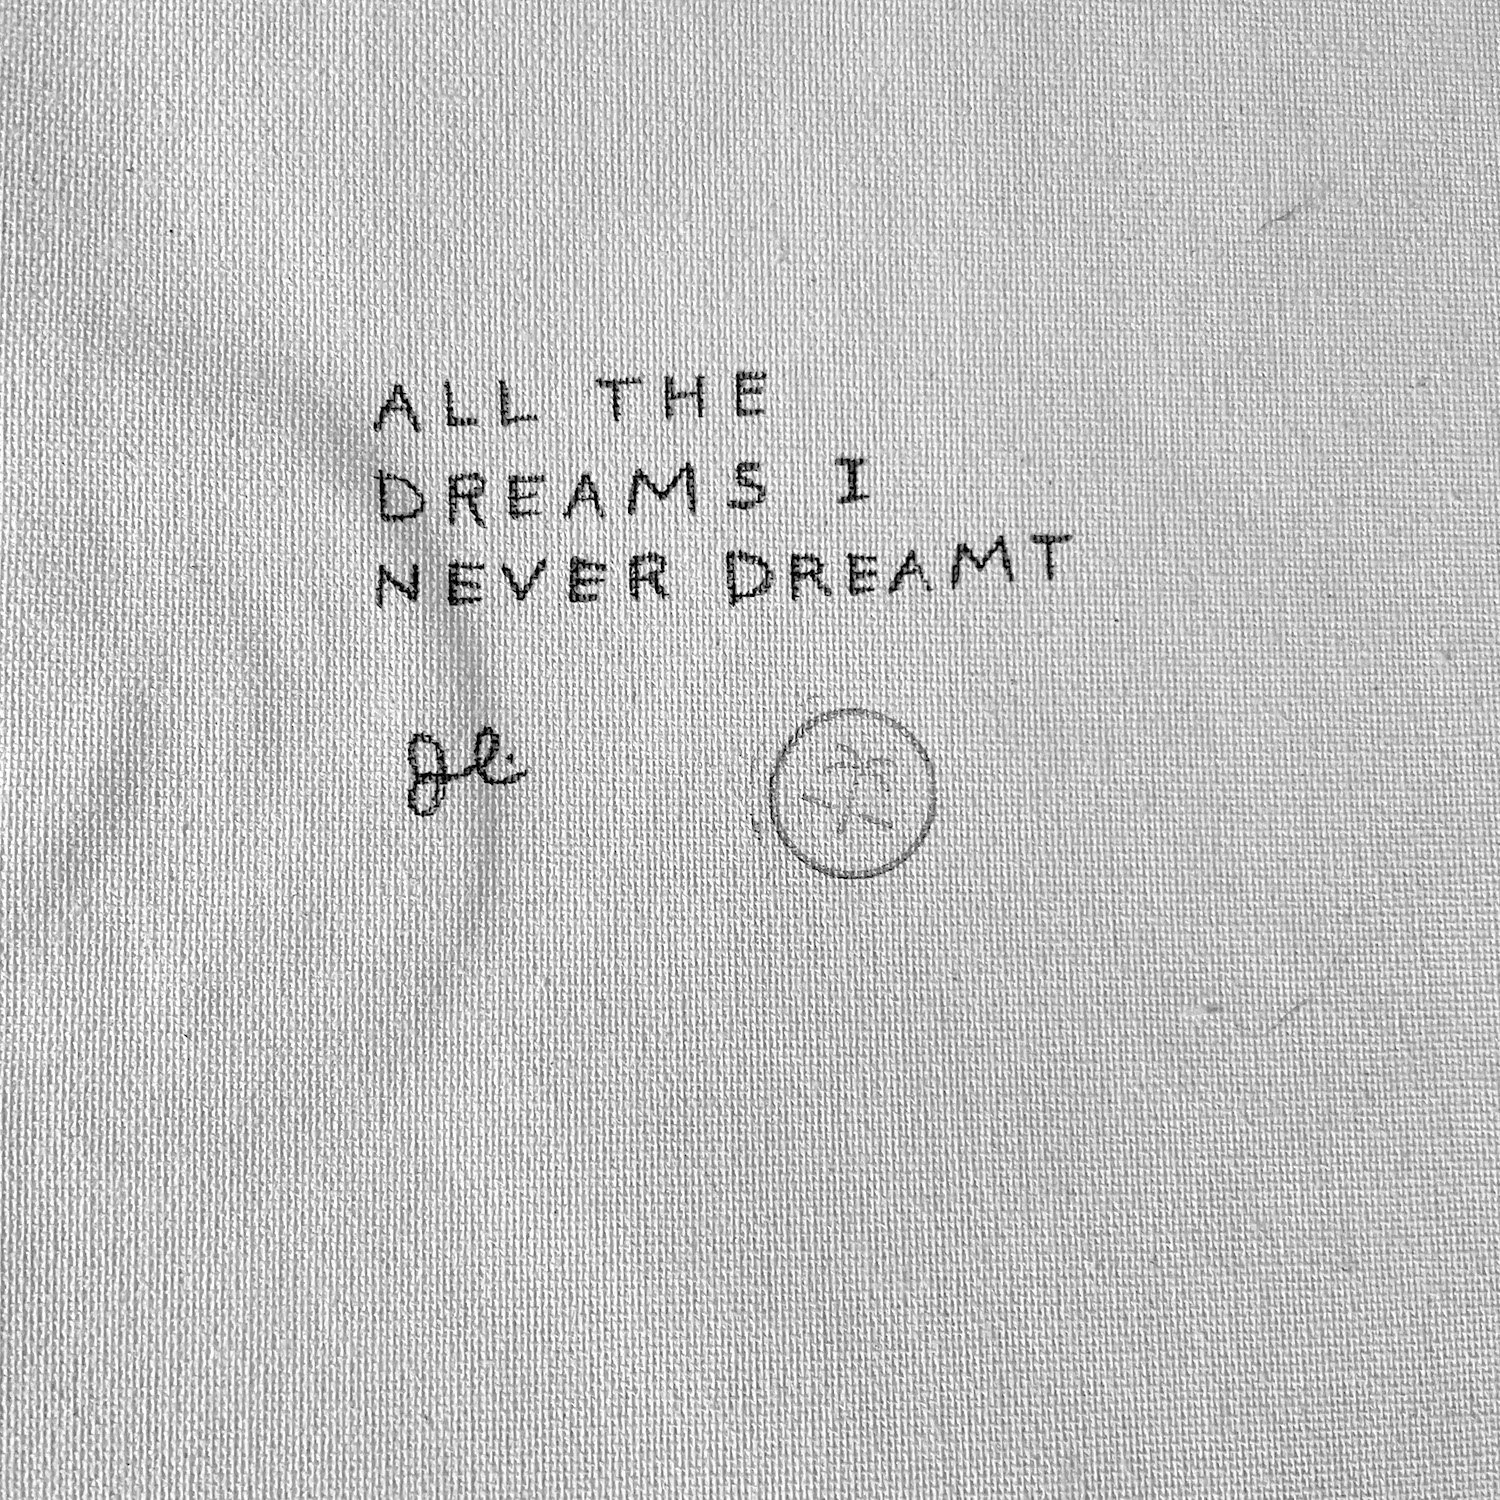 ALL THE
DREAMS I
NEVER DREAMT